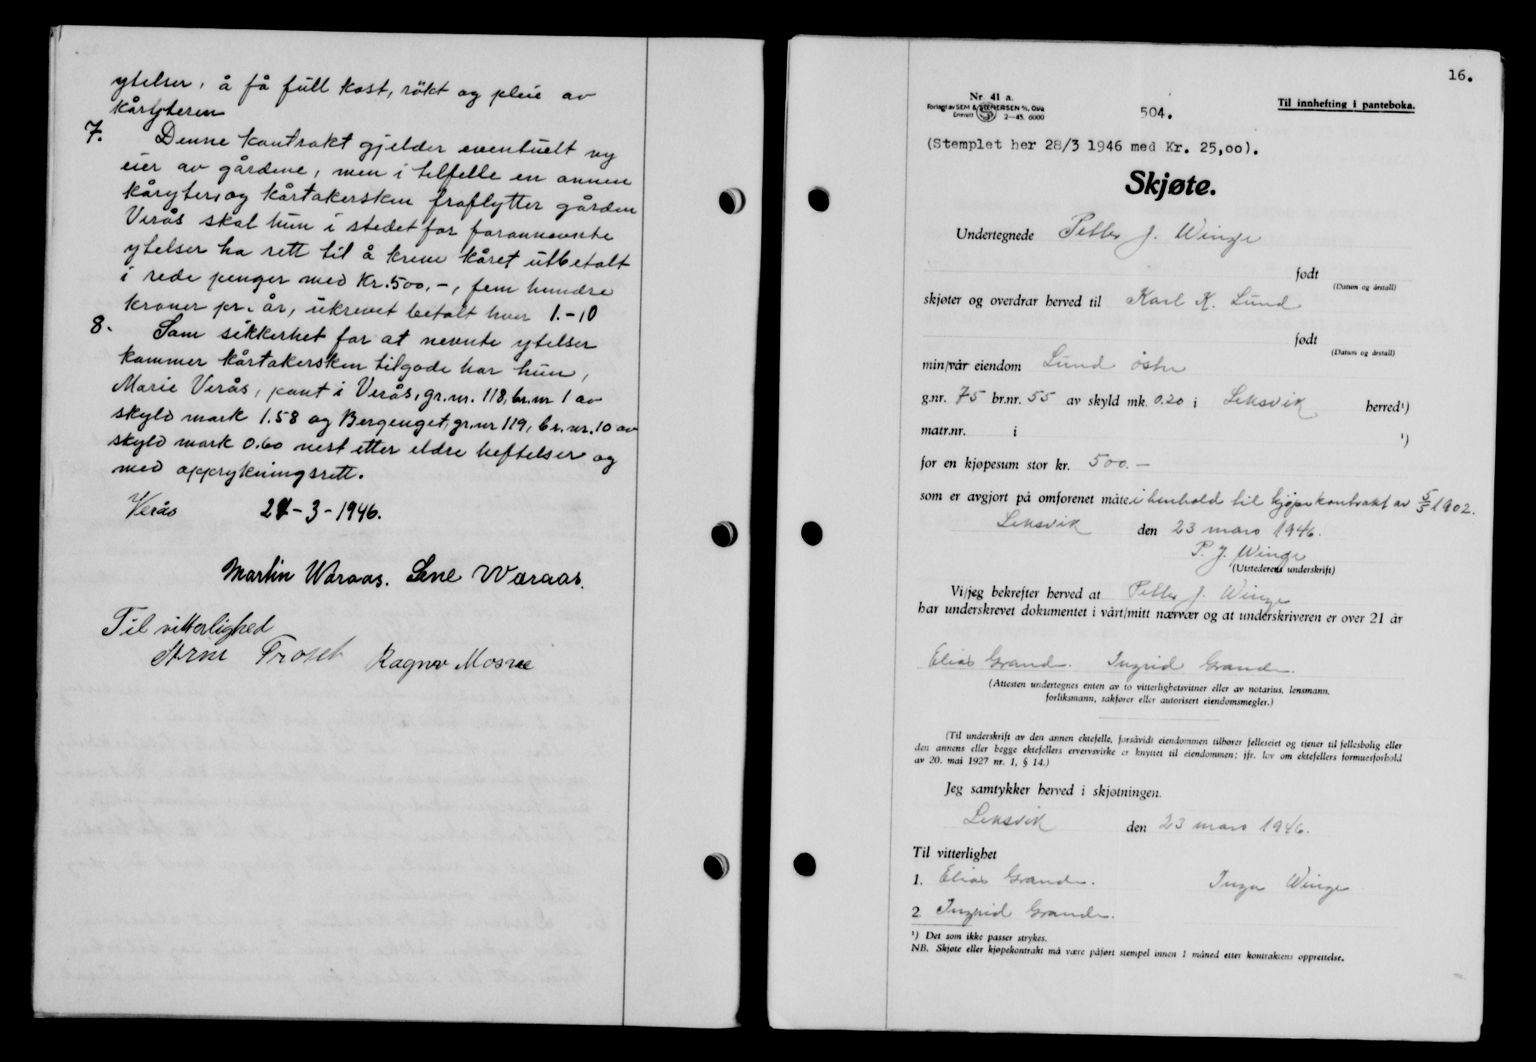 ytelser, å få full kost, røkt og pleie av
kårtyteren
7. Denne kontrakt gjelder eventuelt ny
eier av gårdene, men i tilfelle en annen
kåryter, og kårtakersken fraflytter gården
Verås skal hun i stedet for forannevnte
ytelser ha rett til å kreve kåret utbetalt
i rede penger med Kr. 500,-, fem hundre
kroner pr. år, ukrevet betalt hver 1.-10
8. Som sikkerhet for at nevnte ytelser
kommer kårtakersken tilgode har hun,
Marie Verås, pant i Verås, gr.nr. 118, br.nr 1 av
skyld mark 1.58 og Bergenget, gr.nr 119, br.nr. 10 av
skyld mark 0.60 nest etter eldre heftelser og
med opprykningsrett.
Verås 27-3-1946.
Martin Wæraas. Lene Wæraas.
Til vitterlighed
Arne Troset Ragnar Mosræ
16.
Nr. 41 a.
Forlagt av SEM & STENERSEN A/S, Oslo
Enerett 2—45. 6000
504.
Til innhefting i panteboka.
(Stemplet her 28/3 1946 med Kr. 25,00).
Skjøte.
Undertegnede Petter J. Winge
født
(Datum og årstall)
skjøter og overdrar herved til Karl K. Lund
født
(Datum og årstall)
min/vår eiendom Lund östre
g.nr. 75 br.nr. 55 av skyld mk. 0.20 i Leksvik herred¹)
matr.nr. i ¹)
for en kjøpesum stor kr. 500.-
som er avgjort på omforenet måte i henhold til kjøpekontrakt av 5/5 1902.
Leksvik den 23 mars 1946.
P. J. Winge
(Utstederens underskrift)
Vi/jeg bekrefter herved at Petter J. Winge
har underskrevet dokumentet i vårt/mitt nærvær og at underskriveren er over 21 år
Elias Grande. Ingrid Grande.
(Attesten undertegnes enten av to vitterlighetsvitner eller av notarius, lensmann,
forliksmann, sakfører eller autorisert eiendomsmegler.)
(Til underskrift av den annen ektefelle, forsåvidt eiendommen tilhører felleseiet og tjener til fellesbolig eller
den annens eller begge ektefellers ervervsvirke er knyttet til eiendommen; jfr. lov om ektefellers formuesforhold
av 20. mai 1927 nr. 1, § 14.)
Jeg samtykker herved i skjøtningen.
Leksvik den 23 mars 1946.
Til vitterlighet
1. Elias Grande. Inga Winge
2. Ingrid Grande.
¹) Det som ikke passer strykes.
NB. Skjøte eller kjøpekontrakt må være påført stempel innen 1 måned etter kontraktens opprettelse.